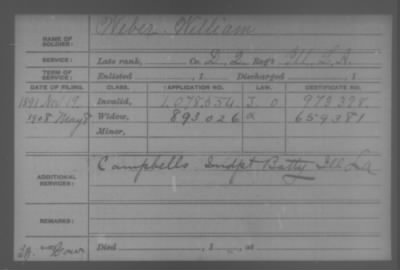 NAME OF SOLDIER: Weber, William
SERVICE: Late rank, Co. D, 2 Reg't Ill. L. A.
TERM OF SERVICE: Enlisted , 1 Discharged , 1
DATE OF FILING. CLASS. APPLICATION NO. LAW. CERTIFICATE NO.
1891 Nov 19. Invalid, 1,078,554 J O 972,398.
1908 May 8 Widow, 893,026 a 659,381
Minor,
ADDITIONAL SERVICES: Campbells Indpt Batty Ill L A
REMARKS:
Died , 1 , at